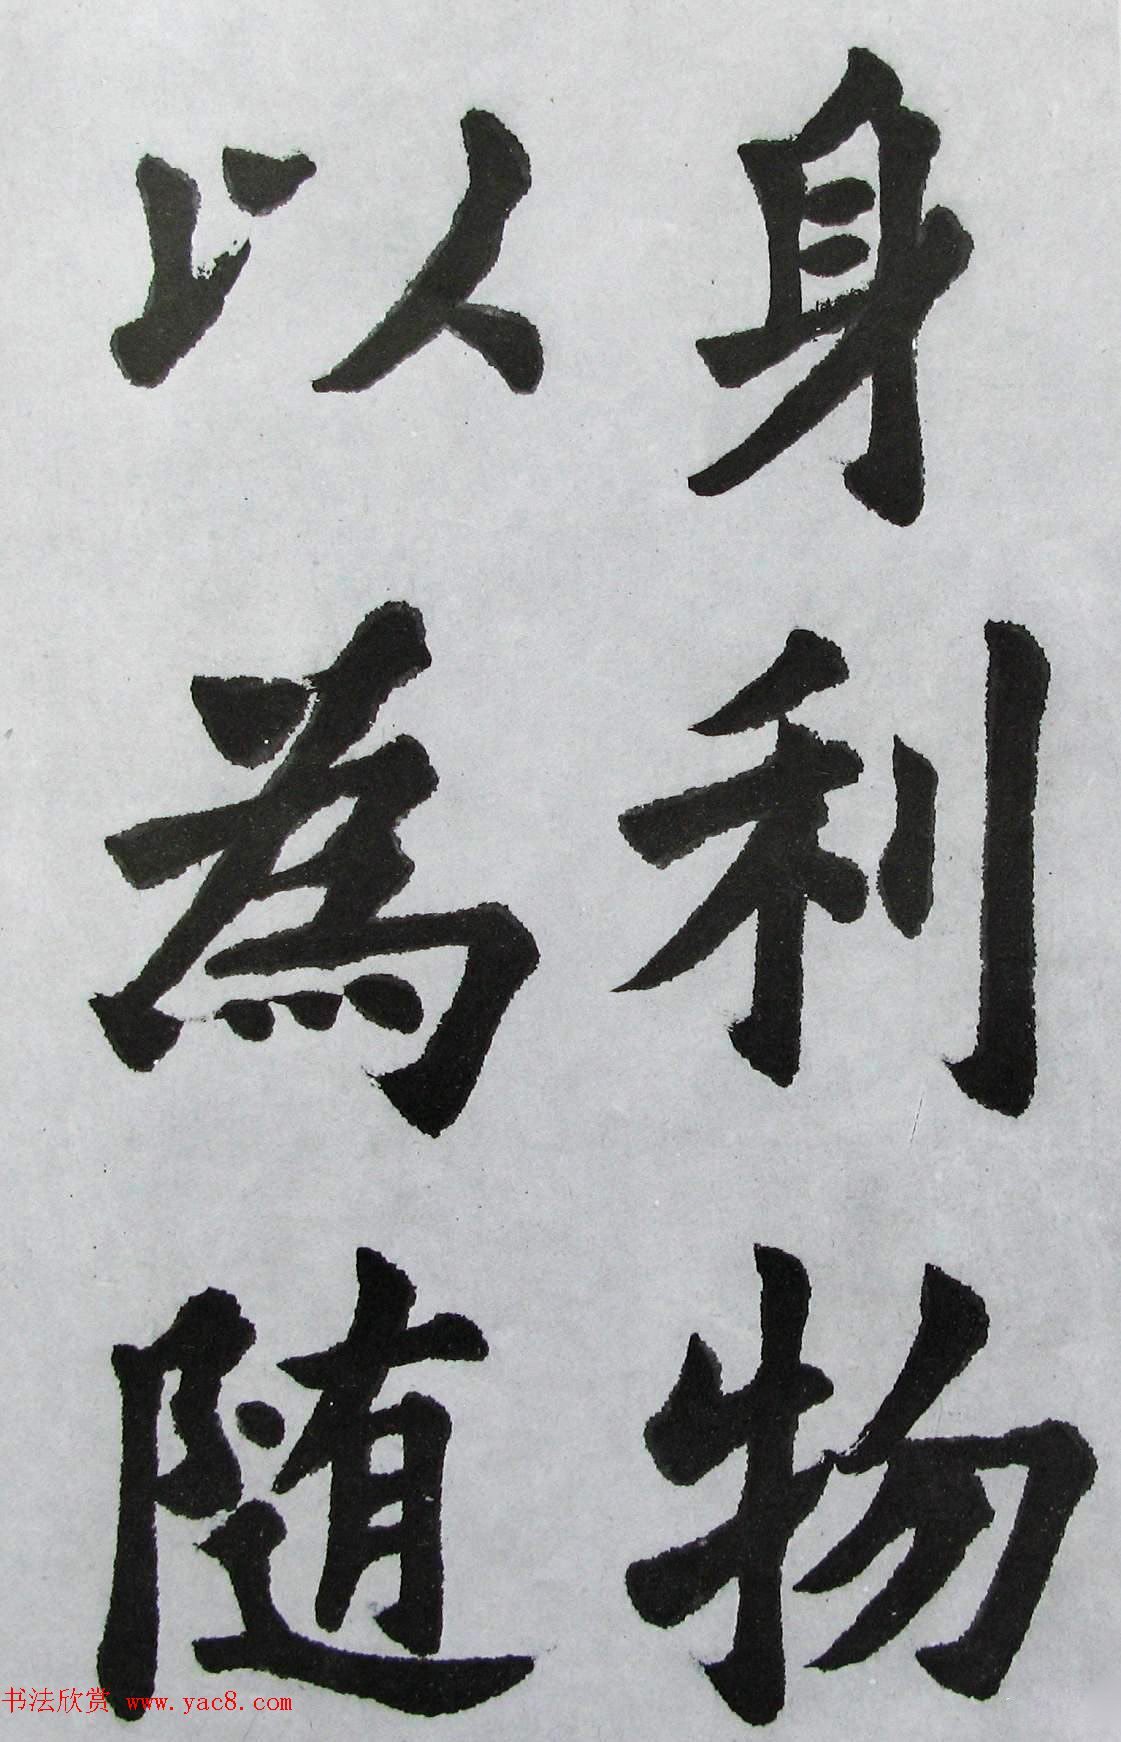 身利物
以為随
书法欣赏 www.yac8.com